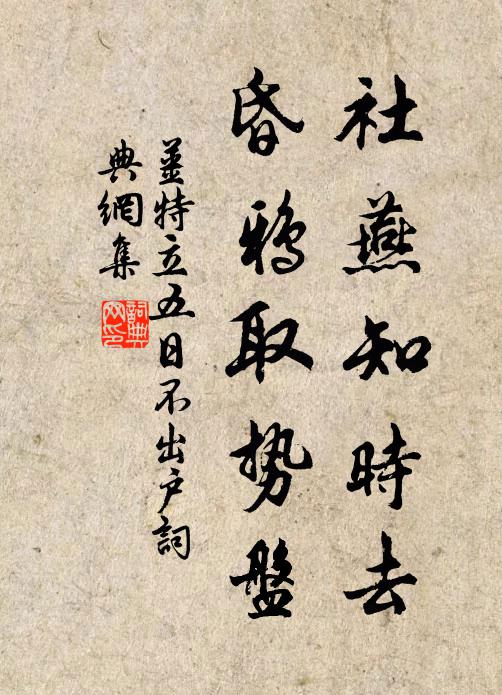 社燕知時去
昏鴉取势盤
薑特立五日不出户詞
典網集
詞典网印